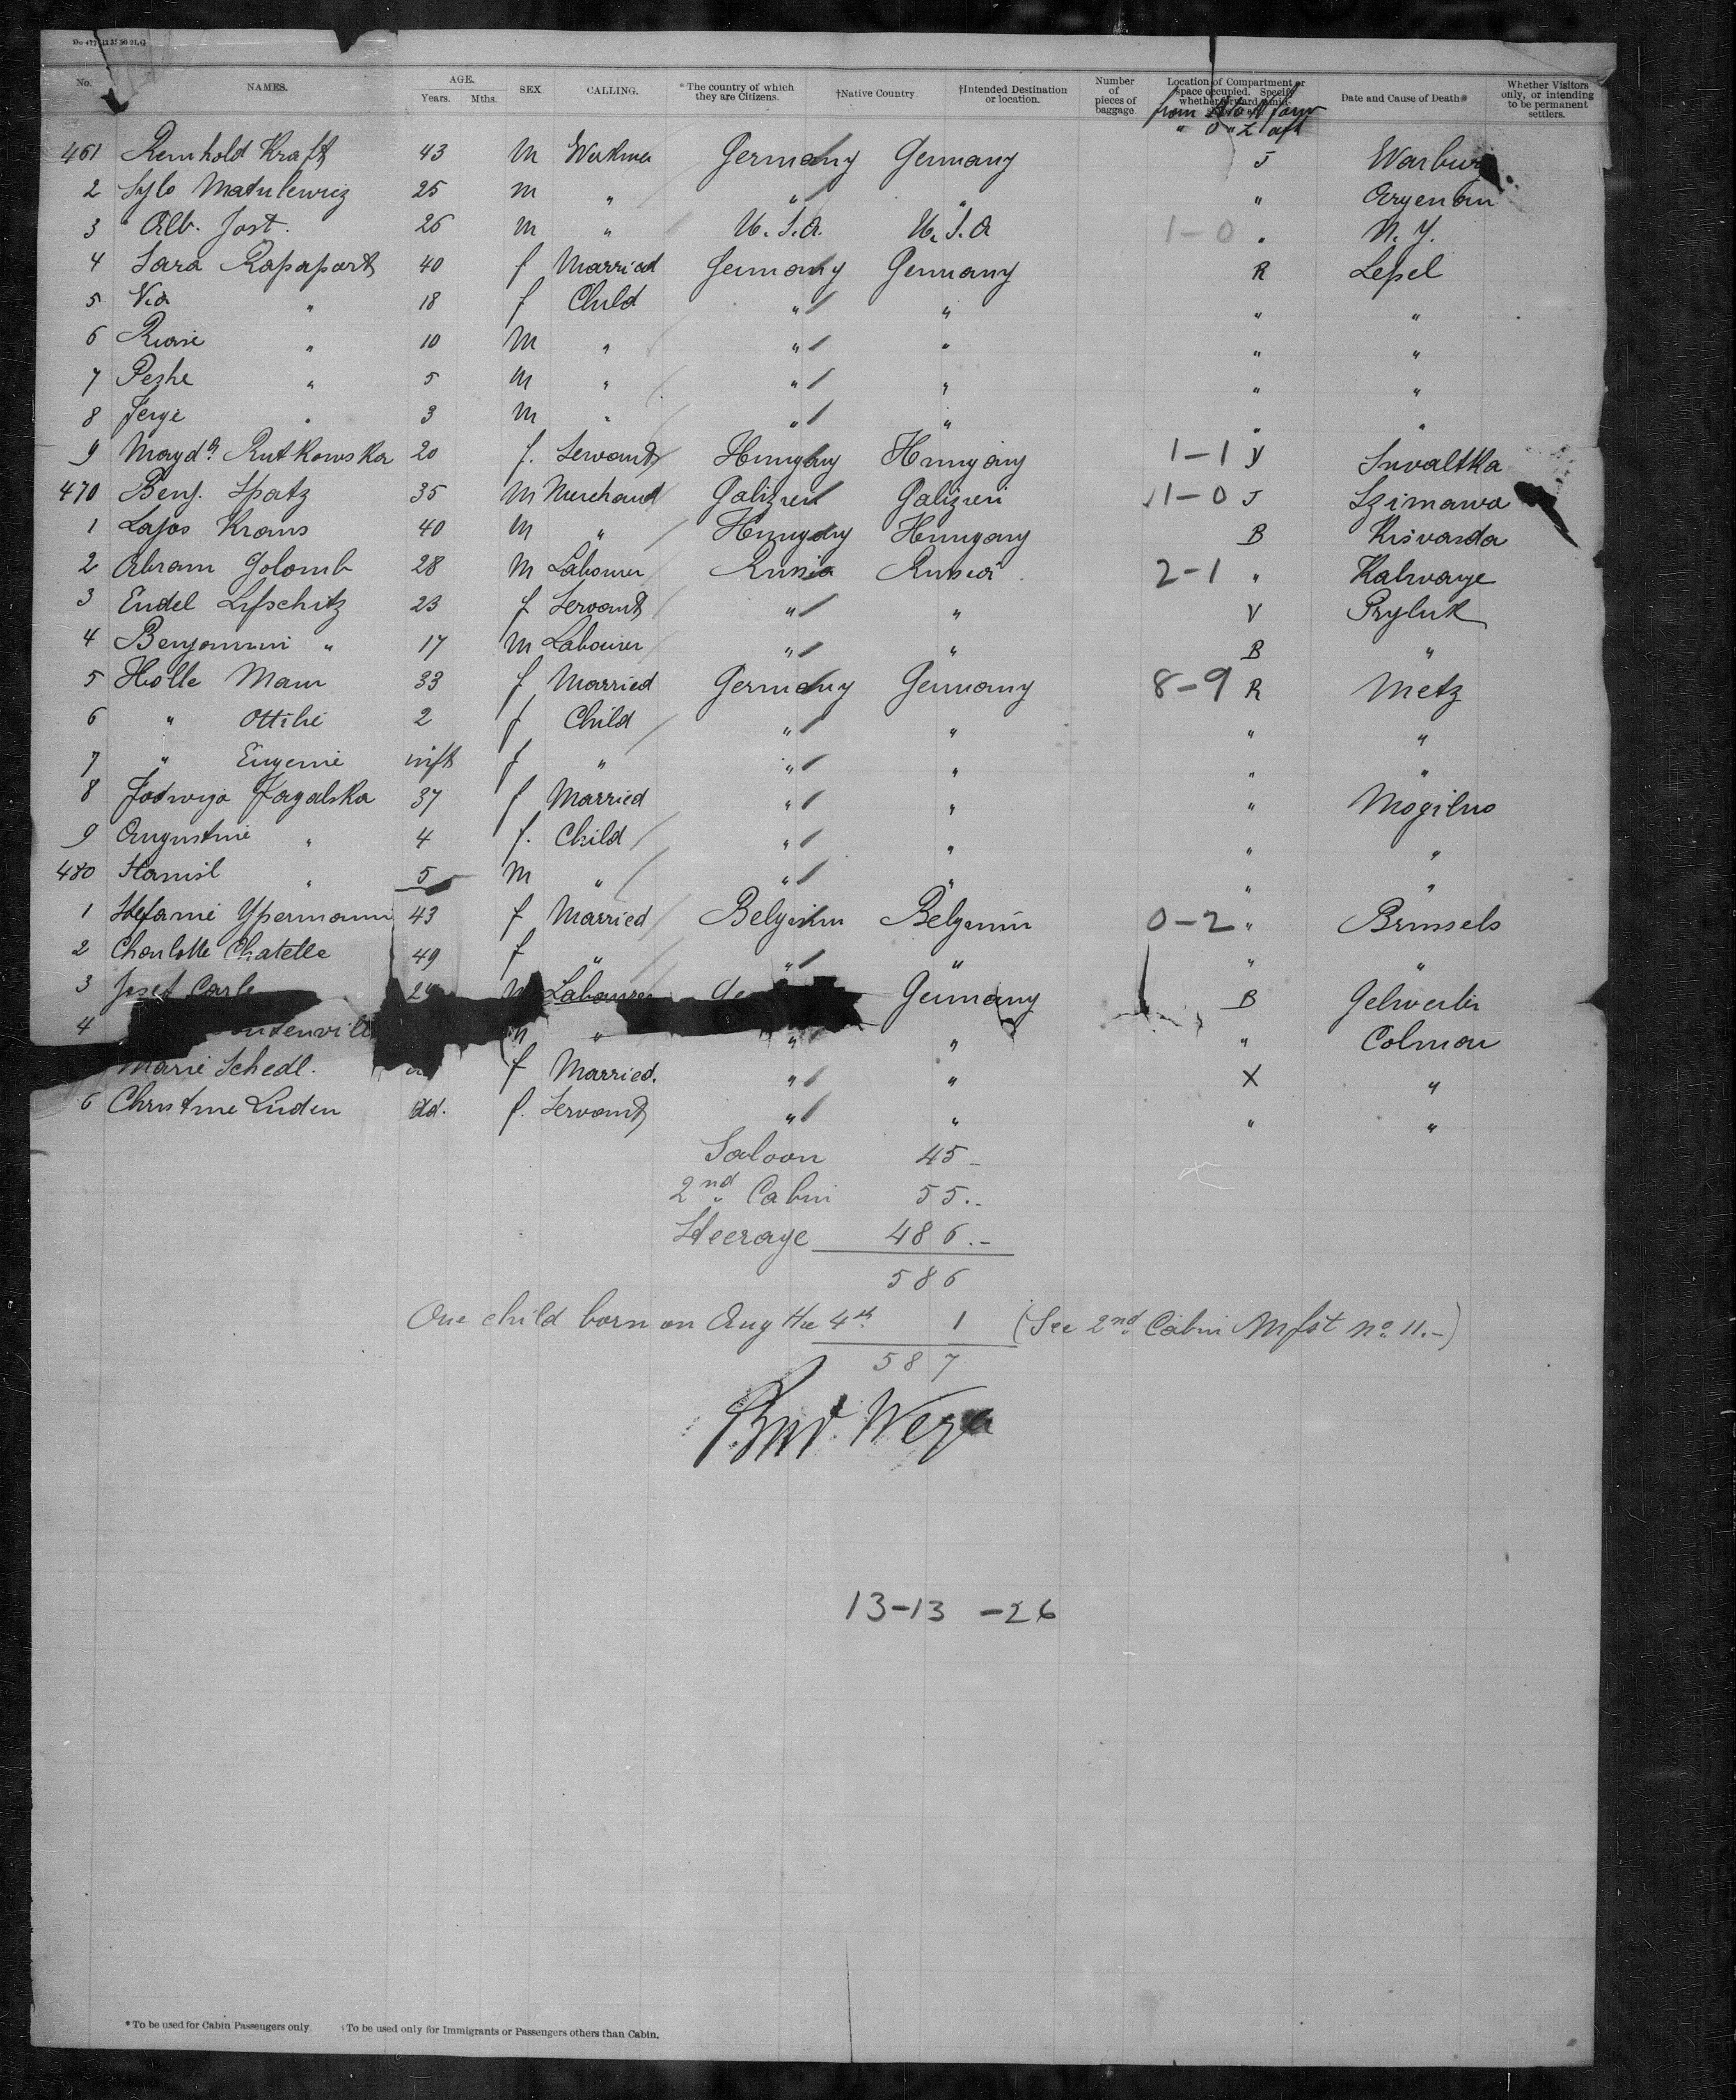 No. NAMES. AGE. Years. Mths. SEX CALLING. *The country of which they are Citizens. †Native Country. †Intended Destination or location. Number of pieces of baggage Location of Compartment or space occupied. Specify whether forward Date and Cause of Death* Whether Visitors only, or intending to be permanent settlers.
from to forw
" O " Z aft
461 Reinhold Kraft 43 m Germany Germany J Warburg
2 Sylo Matulewicz 25 m " " " "
3 Alb. Jost. 26 m " U.S.A. U.S.A 1-0 " N.Y.
4 Sara Rapaport 40 f Married Germany Germany R Lepel
5 " 18 f Child " " " "
6 " 10 m " " " " "
7 Peshe " 5 m " " " " "
8 " 3 m " " " " "
9 Magda Rutkowska 20 f. Servant Hungary Hungary 1-1 V Suvaltka
470 Benj. Spatz 35 m Merchant Galizien Galizien 1-0 J Szimawa
1 Lajos Kraus 40 m " Hungary Hungary B Kisvarda
2 Abram Golomb 28 m Labourer Russia Russia 2-1 " Kalwarye
3 Eudel Lifschitz 23 f Servant " " V Pryluk
4 Benjamin " 17 m Labourer " " B "
5 Holle Marie 33 f Married Germany Germany 8-9 R Metz
6 " Ottilie 2 f Child " " " "
7 " Eugenie inft f " " " " "
8 Jadwiga Jagalska 37 f Married " " " Mogilno
9 Augustine " 4 f. Child " " " "
480 Stanisl " 5 m " " " " "
1 Stefanie Ypermann 43 f Married Belgium Belgium 0-2 " Brussels
2 Charlotte Chatelle 49 f " " " " "
3 Josef Carle m Labourer Germany B
4 " " " " Colmar
Marie Schedl. f Married. " " X "
6 Christine Luden ad. f. Servant " " " "
Saloon 45 -
2nd Cabin 55.-
Steerage 486.-
586
One child born on Aug the 4th. 1 (See 2nd Cabin Mfst No 11.-)
587
13-13 -26
*To be used for Cabin Passengers only. †To be used only for Immigrants or Passengers others than Cabin.